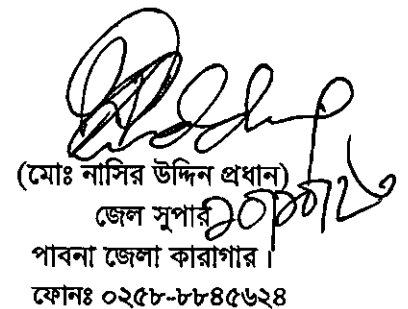 (মোঃ নাসির উদ্দিন প্রধান)
জেল সুপার
পাবনা জেলা কারাগার।
ফোনঃ ০২৫৮-৮৮৪৫৬২৪